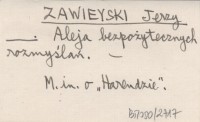 ZAWIEYSKI Jerzy
——. Aleja bezpożytecznych
rozmyślań. —
M. in. o „Harendzie".